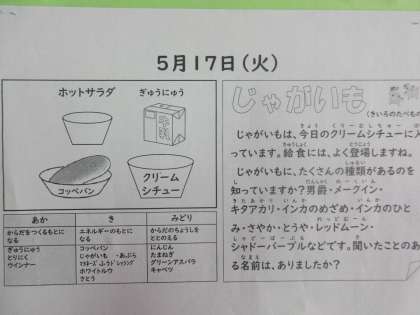 5月17日(火)
ホットサラダ
ぎゅうにゅう
牛乳
コッペパン
クリーム
シチュー
あか
き
みどり
からだをつくるもとに
なる
エネルギーのもとに
なる
からだのちょうしを
ととのえる
ぎゅうにゅう
とりにく
ウインナー
コッペパン
じゃがいも ・あぶら
ホワイトルウ
さとう
にんじん
たまねぎ
グリーンアスパラ
キャベツ
じゃがいも
(きいろのたべもの
じゃがいもは、今日のクリームシチューに入
っています。給食には、よく登場しますね。
じゃがいもに、たくさんの種類があるのを
知っていますか?男爵・メークイン・
キタアカリ・インカのめざめ・インカのひと
み・さやか・とうや・レッドムーン・
シャドークイーン・パープルなどです。聞いたことのあ
る名前は、ありましたか?